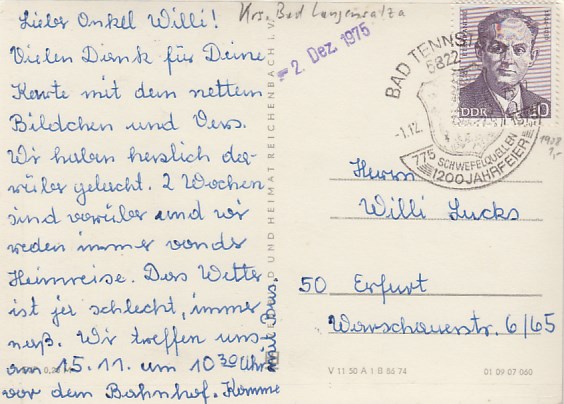 Lieber Onkel Willi!
Vielen Dank für Deine
Karte mit dem nettem
Bildchen und Vers.
Wir haben herlich da-
rüber gelacht. 2 Wochen
sind vorüber und wir
reden immer von der
Heimreise. Das Wetter
ist jez schlecht, immer
naß. Wir treffen uns
am 15.11. um 10 30 Uhr
vor dem Bahnhof. Komme
mit Bus.
Krs. Bad Langensalza
- 2. Dez. 1975
BAD TENNST
5822
-1.12.
775
SCHWEFELQUELLEN
1200 JAHRFEIER
DDR
10
1,-
Herrn
Willi Lucks
50 Erfurt
Warschauerstr. 6/65
UND HEIMAT REICHENBACH I. V.
V 11 50 A 1 B 86 74
01 09 07 060